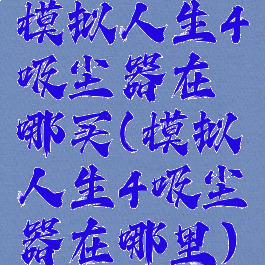 模拟人生4
吸尘器在
哪买(模拟
人生4吸尘
器在哪里)